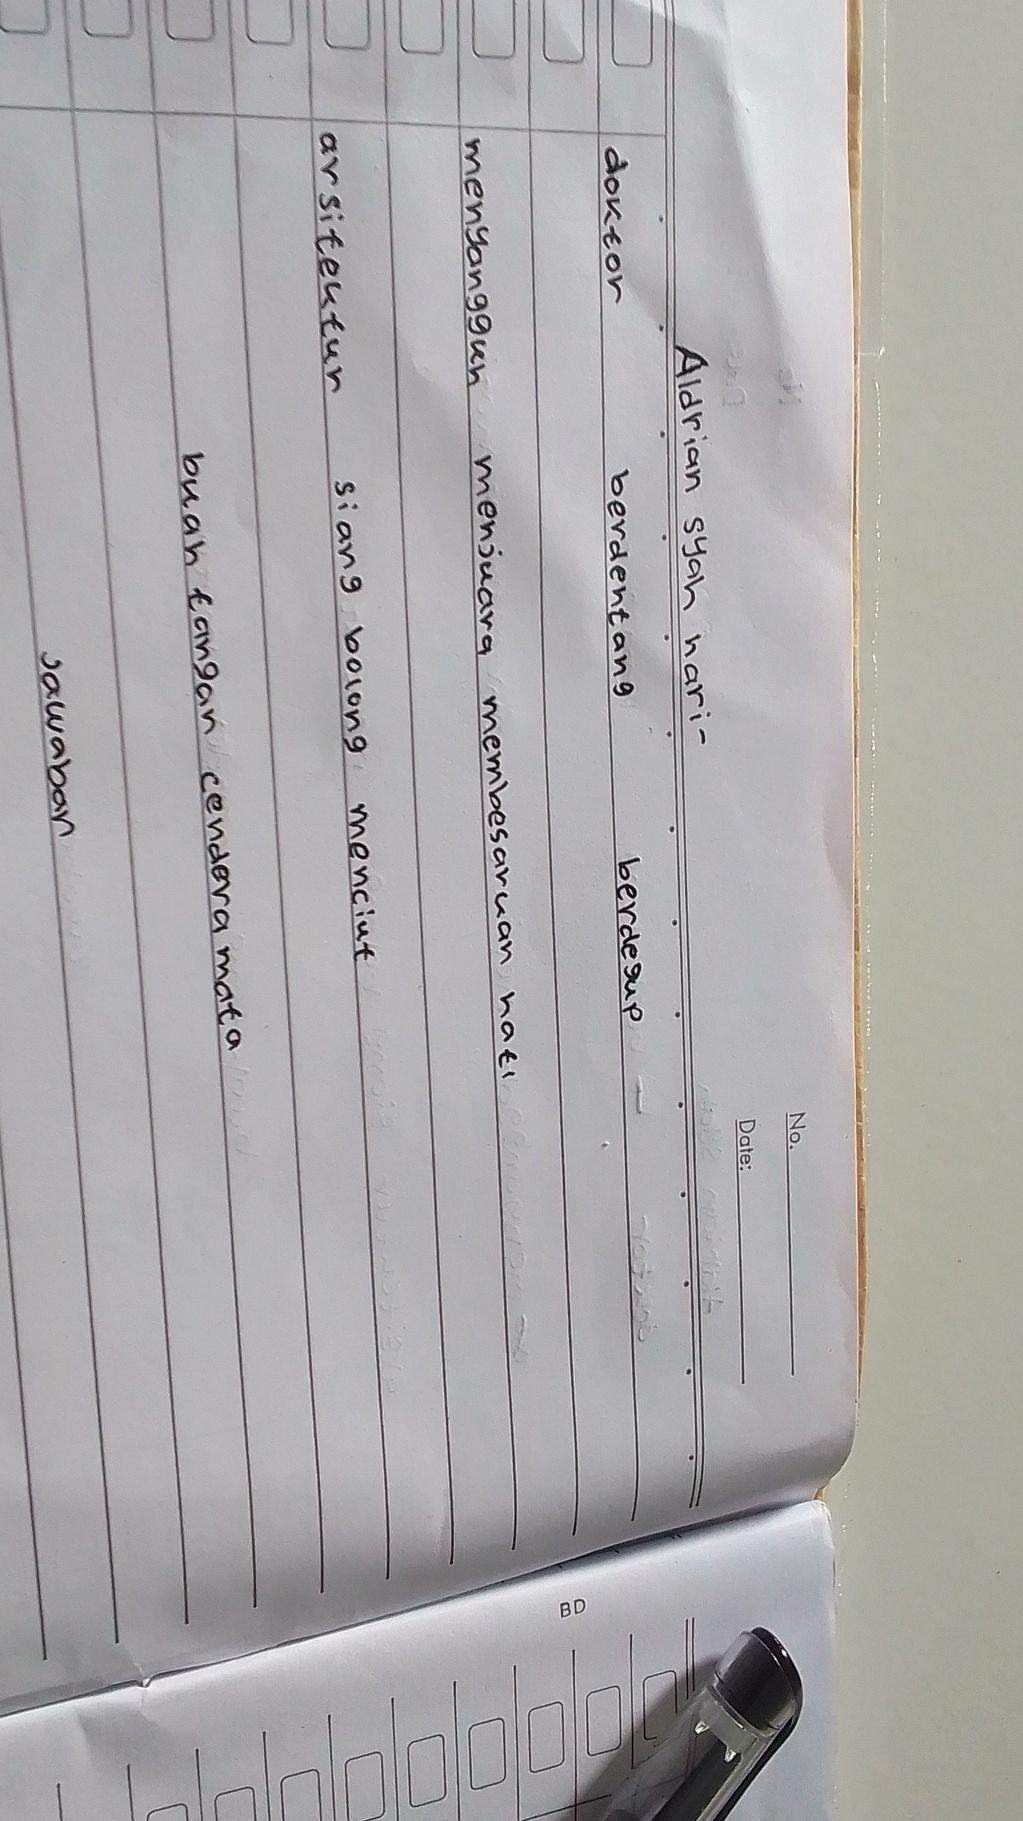 No.
Date:
Aldrian syah hari-
doktor berdentang berdegup
menyanggah menjuara membesarkan hati
arsitektur siang bolong menciut
buah tangan cendera mata
Jawaban
BD